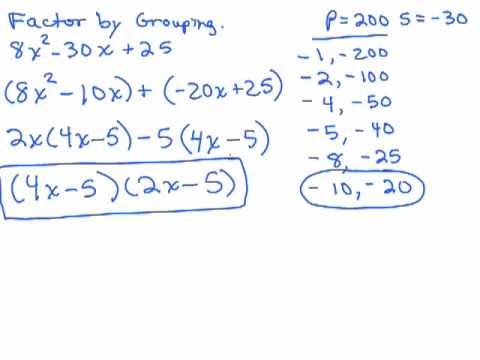 Factor by Grouping.
8x² - 30x + 25
(8x² - 10x) + (-20x + 25)
2x(4x - 5) - 5(4x - 5)
(4x - 5)(2x - 5)
P = 200 S = -30
-1, -200
-2, -100
-4, -50
-5, -40
-8, -25
-10, -20